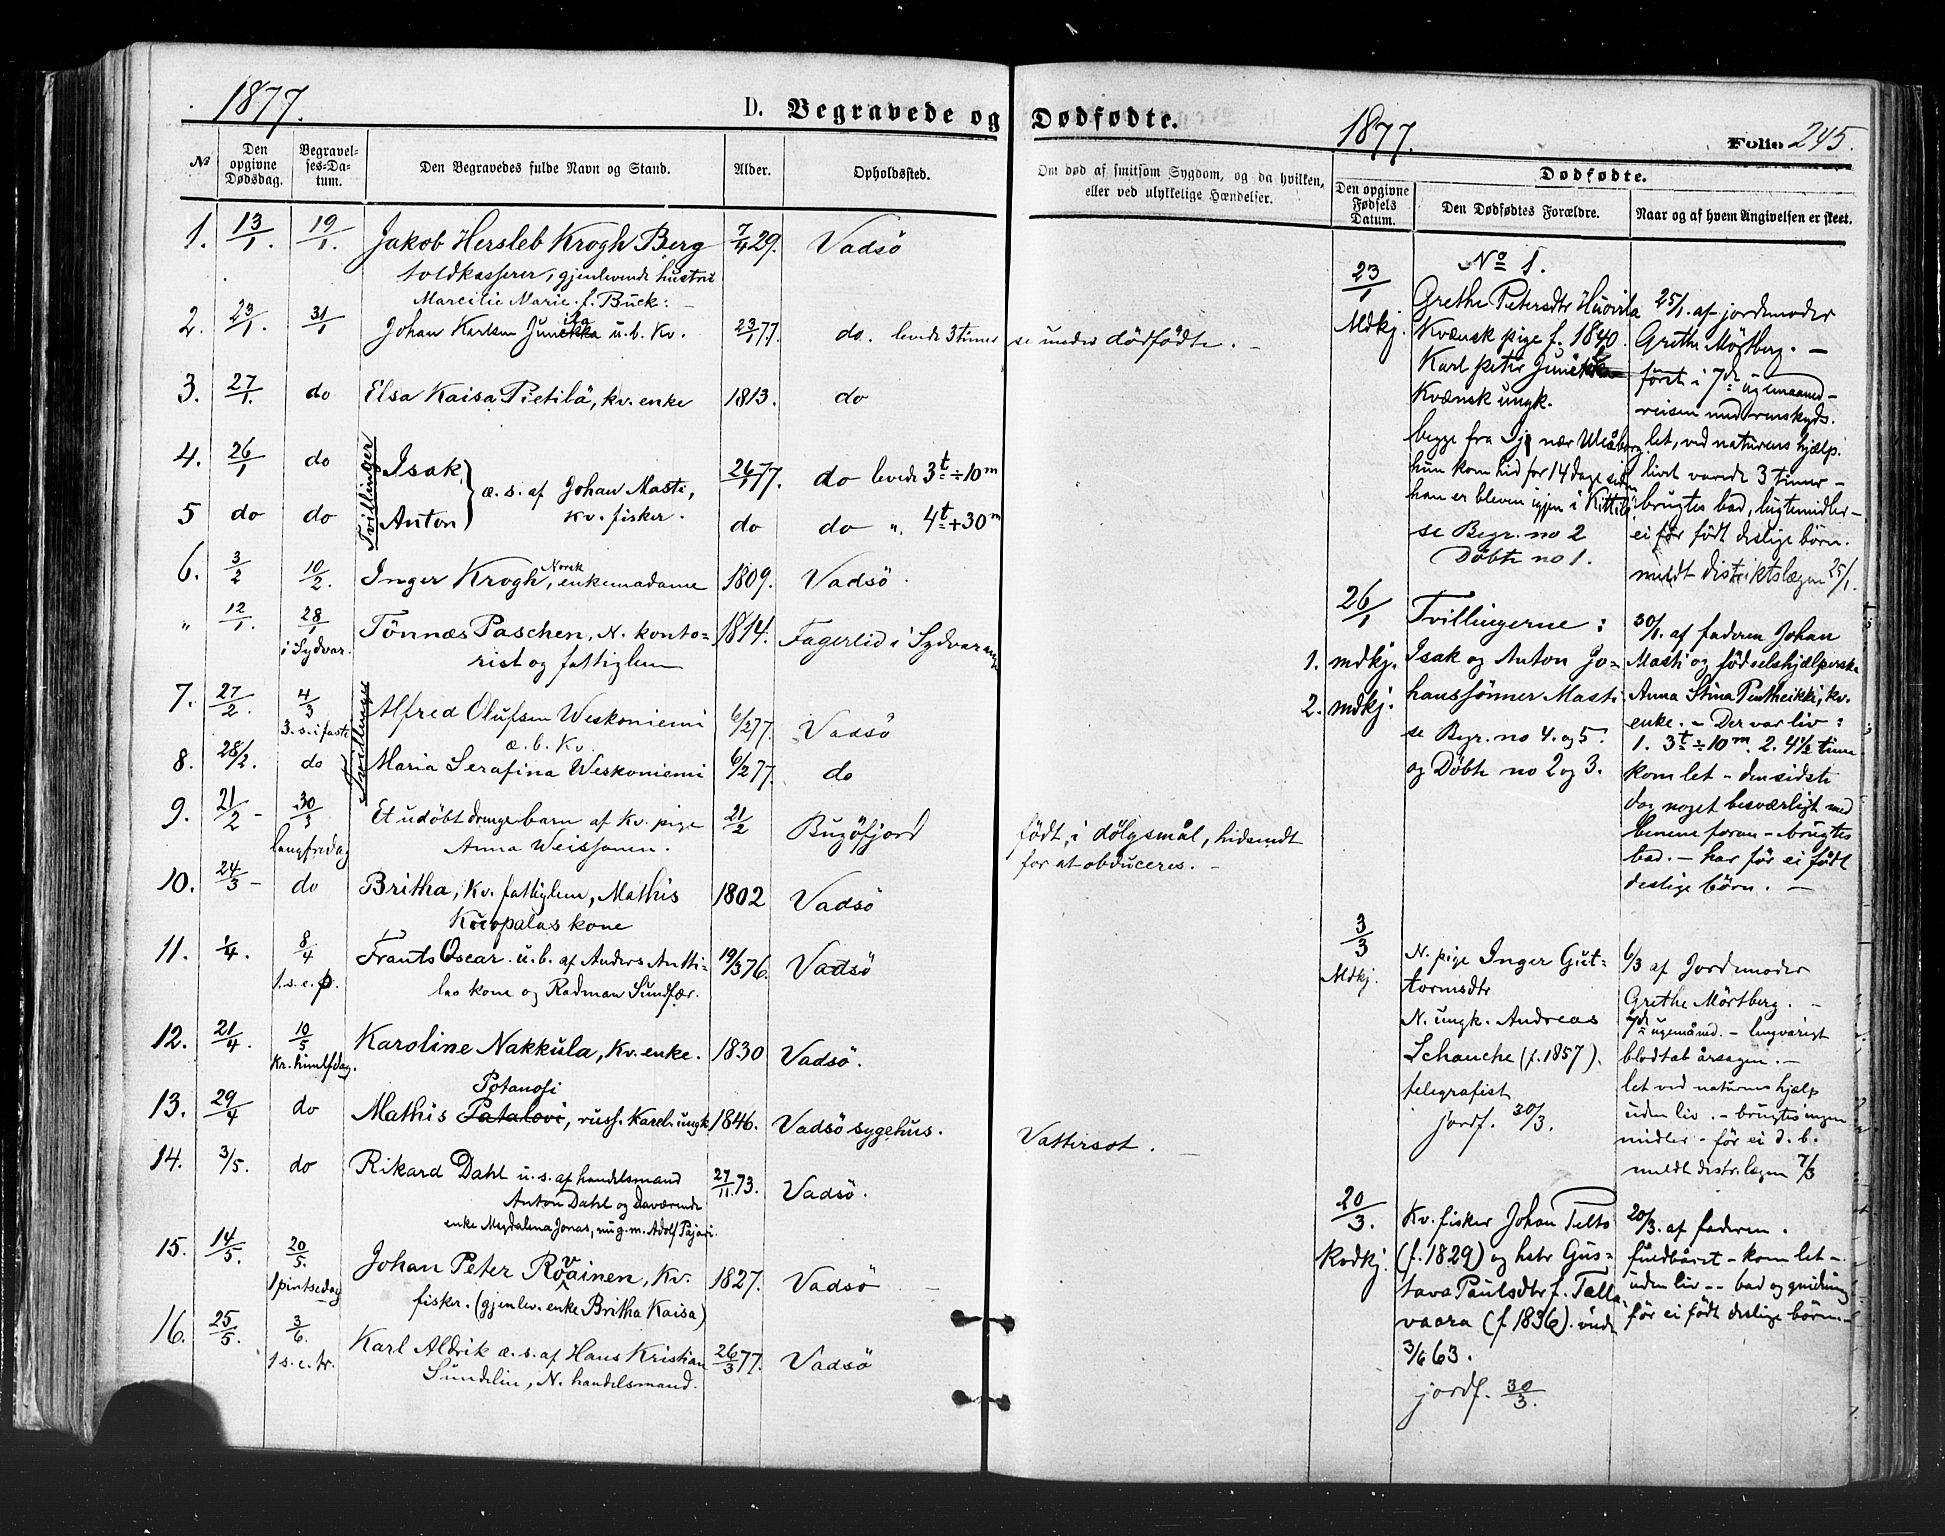 1877.
D. Begravede og Dødfødte.
1877.
Folio 245.
№
Den opgivne Dødsdag.
Begravelses-Datum.
Den Begravedes fulde Navn og Stand.
Alder.
Opholdssted.
Om død af smitsom Sygdom, og da hvilken,
eller ved ulykkelige Hændelser.
Dødfødte.
Den opgivne Fødsels Datum.
Den Dødfødtes Forældre.
Naar og af hvem Angivelsen er skeet.
1. 13/1. 19/1. Jakob Hersleb Krogh Berg 7/4 29. Vadsö
toldkasserer, gjenlevende hustru
Marcilie Marie f. Buck. –
2. 23/1. 31/1 Johan Karlsen u. b. Kv. 23/1 77. do. levede 3 timer se under dödfödte. –
3. 27/1. do Elsa Kaisa Pietilä, kv. enke 1813. do
Tvillinger
4. 26/1 do Isak 26/1 77. do levede 3t ÷ 10m
æ. s. af Johan Masti,
kv. fisker.
5 do do Anton do do " 4t + 30m
6. 3/2 10/2. Inger Krogh, Norsk enkemadame 1809. Vadsö.
" 12/1. 28/1 i Sydvar. Tönnæs Paschen, N. konto- 1814. Fagerlid i Sydvaranger
rist og fattiglem
Tvillinger
7. 27/2. 4/3 3. s. i faste Alfred Olufsen Weskoniemi 6/2 77. Vadsö
æ. b. Kv.
8. 28/2. do Maria Serafina Weskoniemi 6/2 77. do
9. 21/2 – 30/3 langfredag Et udöbt drengebarn af Kv. pige 21/2 Bugöfjord födt i dölgsmål, hidsendt
Anna Weissanen.
for at obduceres. –
10. 24/3 – do Britha, Kv. fattiglem, Mathis 1802 Vadsö
kone
11. 1/4. 8/4 1. s. e. p. Frants Oscar u. b. af Anders Antti- 19/3 76. Vadsö
las kone og Radman Sundfær.
12. 21/4. 10/5 Kr. himlfdag. Karoline Nakkula, Kv. enke. 1830 Vadsö.
Potanofi
13. 29/4 do Mathis Patalovi, russ. Karel. ungk. 1846. Vadsö sygehus.
Vattersot. –
14. 3/5. do Rikard Dahl u. s. af handelsmand 27/11 73. Vadsö.
Anton Dahl og Daværende
enke Magdalena Jonas, nu g. m. Adolf Pajari.
15. 14/5. 20/5. 1 pintsedag Johan Peter Rovainen, Kv. 1827. Vadsö –
fisker. (gjenlev. enke Britha Kaisa)
16. 25/5. 3/6. 1 s. e. tr. Karl Aldrik æ. s. af Hans Kristian 26/3 77. Vadsö
Sundelin, N. handelsmand.
No 1.
23/1
Mdkj.
Grethe Petersdtr Huovila
Kvænsk pige f. 1840.
Karl peter
Kvænsk ungk.
begge fra nær Uleåborg.
hun kom hid for 14 dage siden
han er bleven igjen i Kittilä.
se Begr. no 2
Döbte no 1.
25/1. af jordemoder
Grethe Mörtberg. –
först i 7de ugemaaned –
reisen med renskyds.
let, ved naturens hjælp.
livet varede 3 timer –
brugtes bad, lugtemidler –
ei för födt deslige börn.
meldt distriktslægen 25/1.
26/1
1. mdkj.
2. mdkj.
Tvillingerne :
Isak og Anton Jo-
hanssönner Masti
se Begr. no 4. og 5.
og Döbte no 2 og 3.
30/1. af faderen Johan
Masti og födselshjælperske
Anna Stina Pentheikki, kv.
enke. – Der var liv :
1. 3t ÷ 10m. 2. 4 1/2 time
kom let – den sidste
dog noget besværligt med
benene foran – brugtes
bad. – har för ei födt
deslige börn. –
3/3
Mdkj.
N. pige Inger Gut-
tormsdtr
N. ungk. Andreas
Schanche (f. 1857).
telegrafist
jordf. 30/3.
6/3 af Jordemoder
Grethe Mörtberg. –
7de ugemånd. – langvarigt
blodtab årsagen. –
let ved naturens hjælp
uden liv. – brugtes ingen
midler – för ei d. b.
meldt distr.lægen 7/3
20/3.
Kvdkj.
Kv. fisker Johan Telts
(f. 1829) og hstr Gus-
tava Paulsdtr f. Talla
vaara (f. 1836). vnde
3/6 63.
jordf. 30/3.
20/3. af faderen.
fuldbåret – kom let –
uden liv – bad og gnidning
för ei födt deslige börn. –